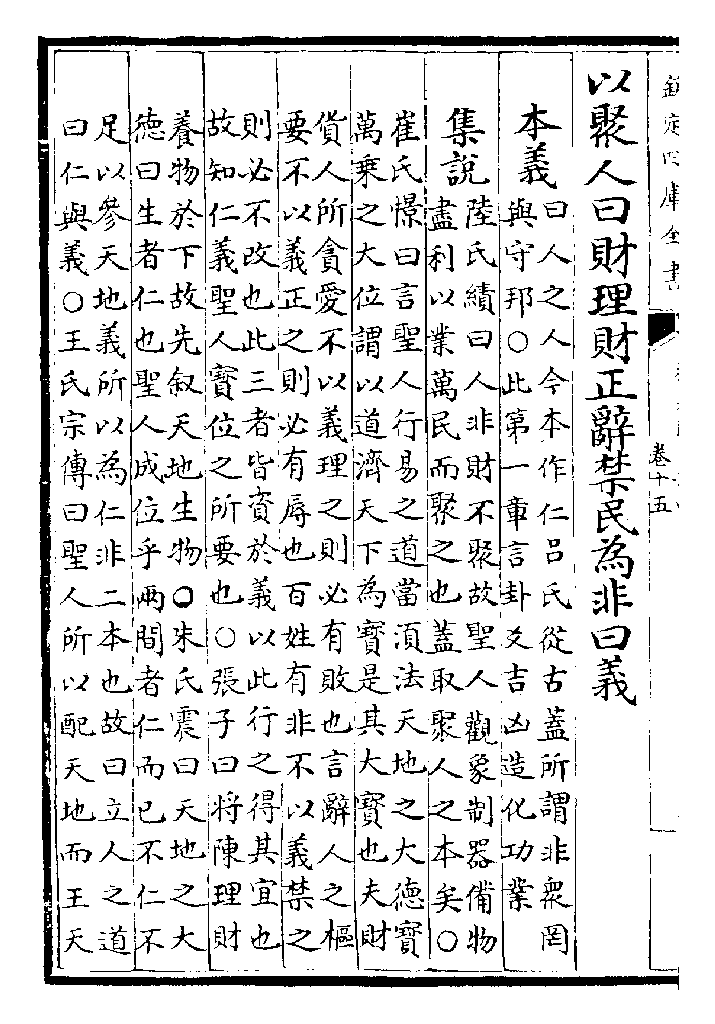 欽定四庫全書
卷十五
以聚人曰財理財正辭禁民為非曰義
本義
曰人之人今本作仁呂氏從古蓋所謂非衆罔
與守邦○此第一章言卦爻吉凶造化功業
集說
陸氏績曰人非財不聚故聖人觀象制器備物
盡利以業萬民而聚之也蓋取聚人之本矣○
崔氏憬曰言聖人行易之道當須法天地之大德寶
萬乘之大位謂以道濟天下為寶是其大寶也夫財
貨人所貪愛不以義理之則必有敗也言辭人之樞
要不以義正之則必有辱也百姓有非不以義禁之
則必不改也此三者皆資於義以此行之得其宜也
故知仁義聖人寶位之所要也○張子曰將陳理財
養物於下故先叙天地生物○朱氏震曰天地之大
德曰生者仁也聖人成位乎兩間者仁而已不仁不
足以參天地義所以為仁非二本也故曰立人之道
曰仁與義○王氏宗傳曰聖人所以配天地而王天